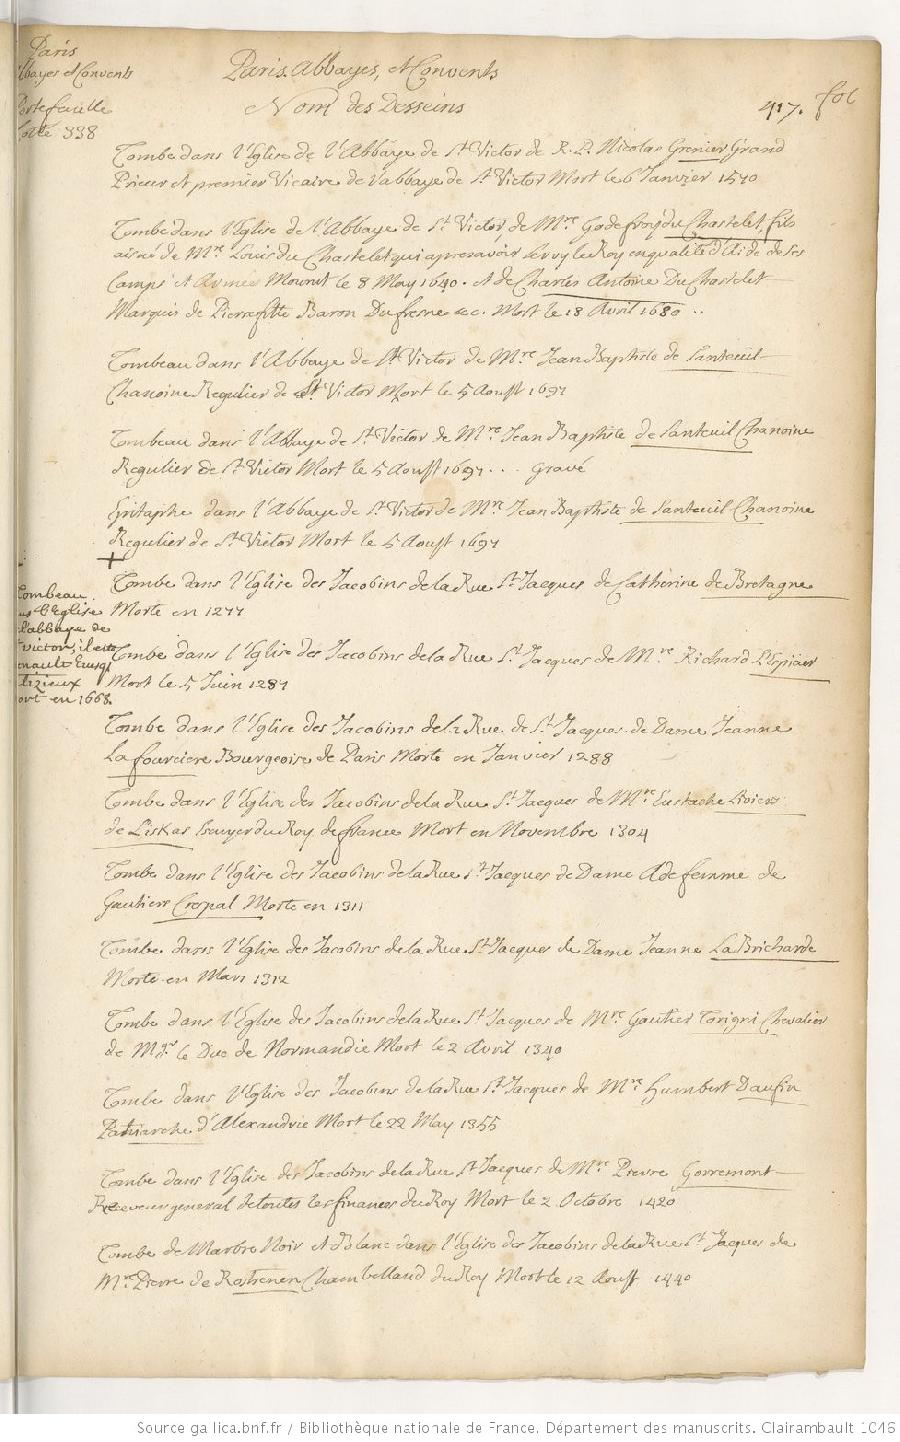 Paris
Abbayes et Convents
Portefeuille
Cotté 338
Paris. Abbayes, et Convents
Nom des Desseins
417. fol
Tombe dans l'Eglise de l'Abbaye de St Victor de R. P. Nicolas Grenier Grand
Prieur et premier Vicaire de l'abbaye de St Victor Mort le 6 Janvier 1570
Tombe dans l'Eglise de l'Abbaye de St Victor, de Mre Godefroy du Chastelet, fils
aisné de Mre Louis du Chastelet qui apres avoir servy le Roy en qualité d'Aide de ses
Camps et Armées Mourut le 8 May 1640. et de Charles Antoine Du Chastelet
Marquis de Pierrefitte Baron Dufresne &c. Mort le 18 Avril 1680 ..
Tombeau dans l'Abbaye de St Victor de Mre Jean Baptiste de Santeuil
Chanoine Regulier de St Victor Mort le 5 Aoust 1697
Tombeau dans l'Abbaye de St Victor de Mre Jean Baptiste de Santeuil Chanoine
Regulier de St Victor Mort le 5 Aoust 1697 . . . Gravé
Epitaphe dans l'Abbaye de St Victor de Mre Jean Baptiste de Santeuil Chanoine
Regulier de St Victor Mort le 5 Aoust 1697
+
Tombe dans l'Eglise des Jacobins de la Rue St Jacques de Catherine de Bretagne
Morte en 1277
Tombeau
l'Eglise
l'abbaye de
victor, il est
Evesq
Lizieux
mort en 1668.
Tombe dans l'Eglise des Jacobins de la Rue St Jacques de Mre Richard L'Epicier
Mort le 5 Juin 1287
Tombe dans l'Eglise des Jacobins de la Rue de St Jacques de Dame Jeanne
La fourciere Bourgeoise de Paris Morte en Janvier 1288
Tombe dans l'Eglise des Jacobins de la Rue St Jacques de Mre Eustache
de Liskas Escuyer du Roy de france Mort en Novembre 1304
Tombe dans l'Eglise des Jacobins de la Rue St Jacques de Dame Ade femme de
Gautiers Crepal Morte en 1311
Tombe dans l'Eglise des Jacobins de la Rue St Jacques de Dame Jeanne La Bricharde
Morte en Mars 1312
Tombe dans l'Eglise des Jacobins de la Rue St Jacques de Mre Gautier Torigni Chevalier
de Mgr le Duc de Normandie Mort le 2 Avril 1340
Tombe dans l'Eglise des Jacobins de la Rue St Jacques de Mre Humbert Daufin
Patriarche d'Alexandrie Mort le 22 May 1355
Tombe dans l'Eglise des Jacobins de la Rue St Jacques de Mre Pierre Gorremont
Receveur general de toutes les finances du Roy Mort le 2 Octobre 1420
Tombe de Marbre Noir et Blanc dans l'Eglise des Jacobins de la Rue St Jacques de
Mre Pierre de Rostrenen Chambelland du Roy Mort le 12 Aoust 1440
Source gallica.bnf.fr / Bibliothèque nationale de France. Département des manuscrits. Clairambault 1046